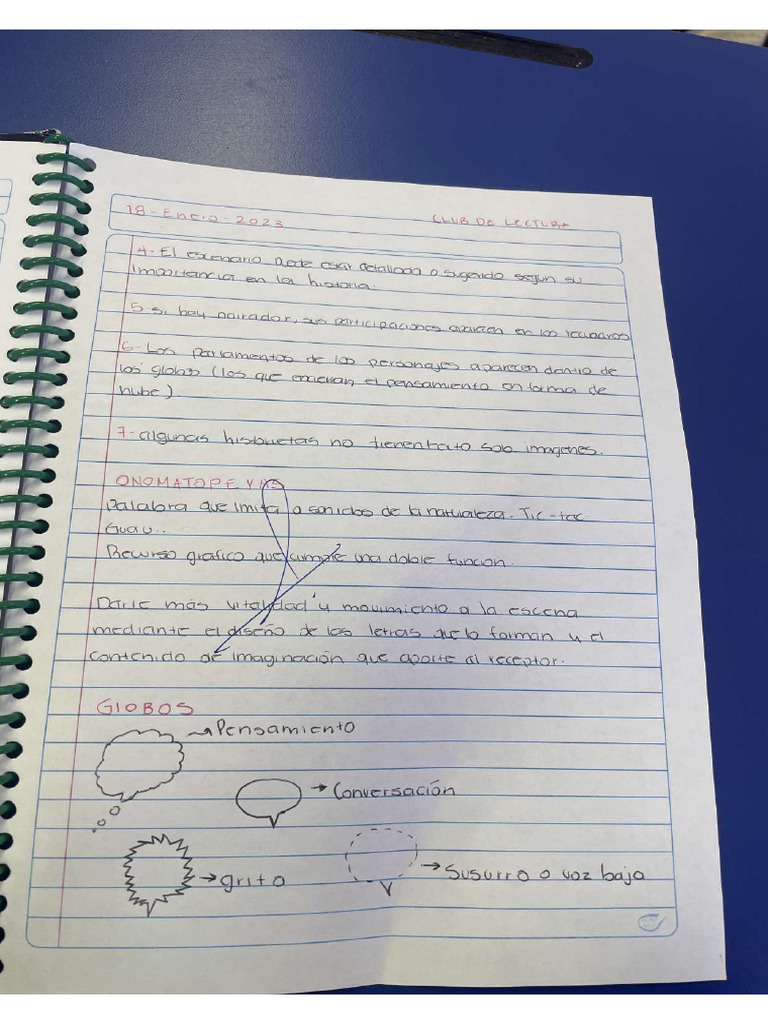 18-Enero-2023 CLUB DE LECTURA
4-El escenario puede estar detallado o sugerido segun su
importancia en la historia.
5-si hay narrador, sus participaciones aparecen en los recuadros
6-Los parlamentos de los personajes aparecen dentro de
los globos (los que encierran el pensamiento en forma de
nube)
7-algunas historietas no tienen texto solo imagenes.
ONOMATOPEYAS
Palabra que imita a sonidos de la naturaleza. Tic-tac
Guau..
Recurso grafico que cumple una doble funcion.
Darle más vitalidad y movimiento a la escena
mediante el diseño de las letras que lo forman y el
contenido de imaginación que aporte al receptor.
GLOBOS
Pensamiento
Conversación
grito
Susurro o voz baja